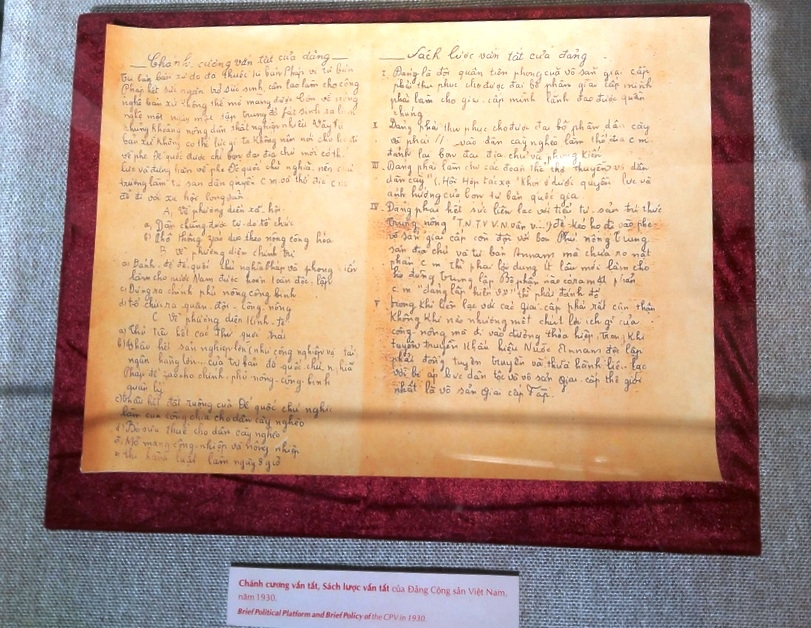 Chánh cương vắn tắt của đảng
Tư bản bản xứ đã thuộc tư bản Pháp, vì tư bản
Pháp hết sức ngăn trở sức sinh sản làm cho công
nghệ bản xứ không thể mở mang được. Còn về nông
nghệ một ngày một tập trung đã phát sinh ra lắm
khủng hoảng nông dân thất nghiệp nhiều. Vậy tư
bản xứ không có thế lực gì ta không nên nói cho họ đi
về phe đế quốc được chỉ bọn đại địa chủ mới có thế
lực và đứng hẳn về phe đế quốc chủ nghĩa nên
chủ trương làm tư sản dân quyền c.m. và thổ địa c.m
để đi tới xã hội cộng sản
A, Về phương diện xã hội
a, Dân chúng được tự do tổ chức
b, Phổ thông giáo dục theo nông công hóa
B, Về phương diện chính trị
a) Đánh đổ đế quốc chủ nghĩa Pháp và phong kiến
làm cho nước Nam được hoàn toàn độc lập
c) Dựng ra chính phủ nông công binh
d) tổ chức ra quân đội công nông
C, Về phương diện kinh tế
a) Thủ tiêu hết các thứ quốc trái
b) Thâu hết sản nghiệp lớn (như công nghiệp, vận tải,
ngân hàng lớn... của tư bản đế quốc chủ nghĩa
Pháp để giao cho chính phủ nông công binh
quản lý
c) Thâu hết đất ruộng của đế quốc chủ nghĩa
làm của công chia cho dân cày nghèo
d) Bỏ sưu thuế cho dân cày nghèo
đ) Mở mang công nghiệp và nông nghiệp
e) thi hành luật làm ngày 8 giờ
Sách lược vắn tắt của đảng
I. Đảng là đội quân tiên phong của vô sản giai cấp
phải thu phục cho được đại bộ phận giai cấp mình
phải làm cho giai cấp mình lãnh đạo được quần
chúng
II. Đảng phải thu phục cho được đại bộ phận dân cày
và phải dựa vào dân cày nghèo làm thổ địa c.m.
đánh đổ bọn đại địa chủ và phong kiến
III. Đảng phải làm cho các đoàn thể thợ thuyền và dân
dân cày (Hội Hợp tác xã) khỏi ở dưới quyền lực và
ảnh hưởng của bọn tư bản quốc gia
IV. Đảng phải hết sức liên lạc với tiểu tư sản trí thức
trung nông T.N, T.V.V.N vân v...) để kéo họ đi vào phe
vô sản giai cấp còn đối với bọn Phú nông trung
sản địa chủ và tư bản Annam mà chưa rõ mặt
phản c.m. thì phải lợi dụng ít lâu mới làm cho
họ đứng trung lập. Bộ phận nào đã ra mặt phản
c.m. "đảng lập hiến v.v" thì phải đánh đổ
V. Trong khi liên lạc với các giai cấp phải rất cẩn thận
không khi nào nhường một chút lợi ích gì của
công nông mà đi vào đường thỏa hiệp. Trong khi
tuyên truyền khẩu hiệu Nước Annam độc lập
phải đồng tuyên truyền và thực hành liên lạc
với bị áp bức dân tộc và vô sản giai cấp thế giới
nhất là vô sản giai cấp Pháp.
Chánh cương vắn tắt, Sách lược vắn tắt của Đảng Cộng sản Việt Nam,
năm 1930.
Brief Political Platform and Brief Policy of the CPV in 1930.